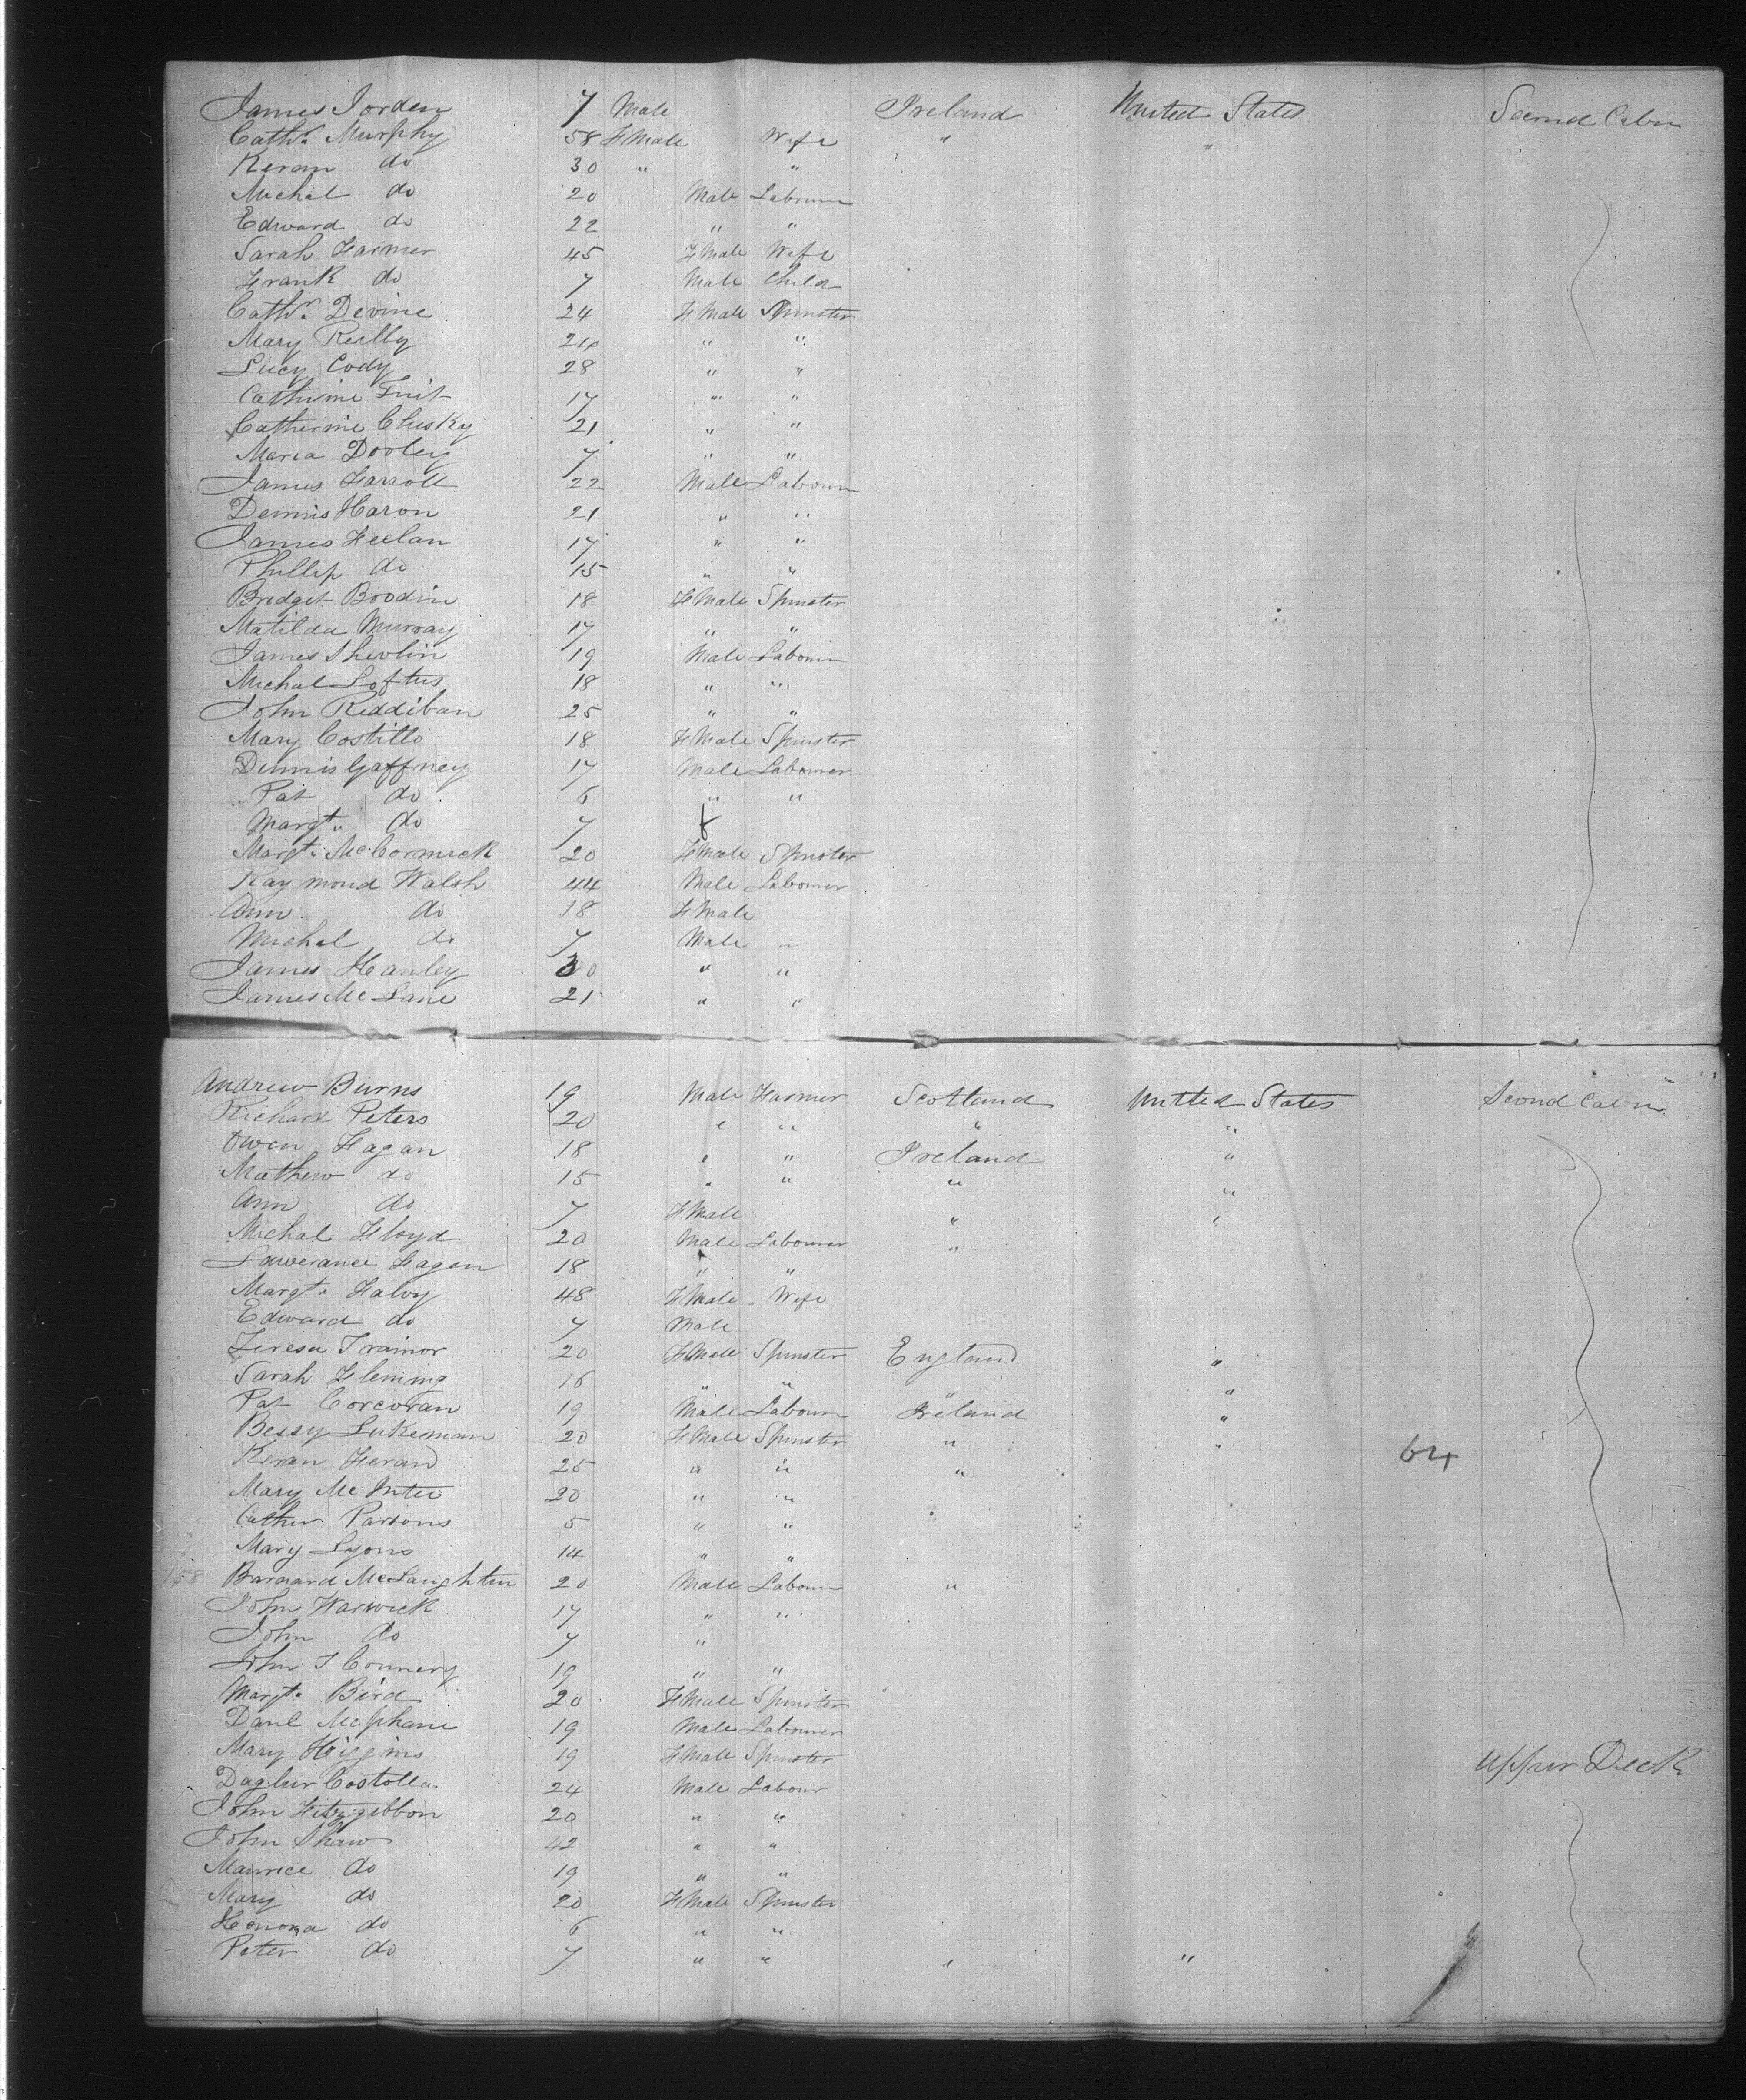 James Jorden 7 Male Ireland United States Second Cabin
Cathr. Murphy 58 F Male Wife " "
Keran do 30 " "
Michal do 20 Male Labourer
Edward do 22 " "
Sarah Farmer 45 F Male Wife
Frank do 7 Male Child
Cathr. Devine 24 F Male Spinster
Mary Reilly 24 " "
Lucy Cody 28 " "
Catherine 17 " "
Catherine Clusky 21 " "
Maria Dooley 7 " "
James Farroll 22 Male Labourer
Dennis Haron 21 " "
James Feelan 17 " "
Phillip do 15 " "
Bridget Boodin 18 F Male Spinster
Matilda Murray 17 " "
James Shevlin 19 Male Labourer
Michal Loftus 18 " "
John Reddiban 25 " "
Mary Costillo 18 F Male Spinster
Dennis Gaffney 17 Male Labourer
Pat do 6 " "
Margt. do 7 f
Margt. McCormick 20 F Male Spinster
Raymond Walsh 44 Male Labourer
Ann do 18 F Male
Michal do 7 Male "
James Hanley 30 " "
James McLane 21 " "
Andrew Burns 19 Male Farmer Scotland United States Second Cabin
Richard Peters 20 " " " "
Owen Fagan 18 " " Ireland "
Mathew do 15 " " " "
Ann do 7 F Male " "
Michal Floyd 20 Male Labourer "
Lawerance Fagen 18 " "
Margt. Falvy 48 F Male Wife
Edward do 7 Male
Teresa Trainor 20 F Male Spinster England "
Sarah Fleming 16 " " " "
Pat Corcoran 19 Male Labourer Ireland "
Bessy Lukeman 20 F Male Spinster " "
Keran Feran 25 " " " 64
Mary 20 " "
Parsons 5 " "
Mary Lyons 14 " "
158 Barnard McLaughten 20 Male Labourer "
John Warwick 17 " "
John do 7 "
John T Connery 19 " "
Margt. Bird 20 F Male Spinster
Danl McPhane 19 Male Labourer
Mary Higgins 19 F Male Spinster Upper Deck
Costolla 24 Male Labour
John Fitzgibbon 20 " "
John Shaw 42 " "
Maurice do 19 " "
Mary do 20 F Male Spinster
Honora do 6 " "
Peter do 7 " " " "